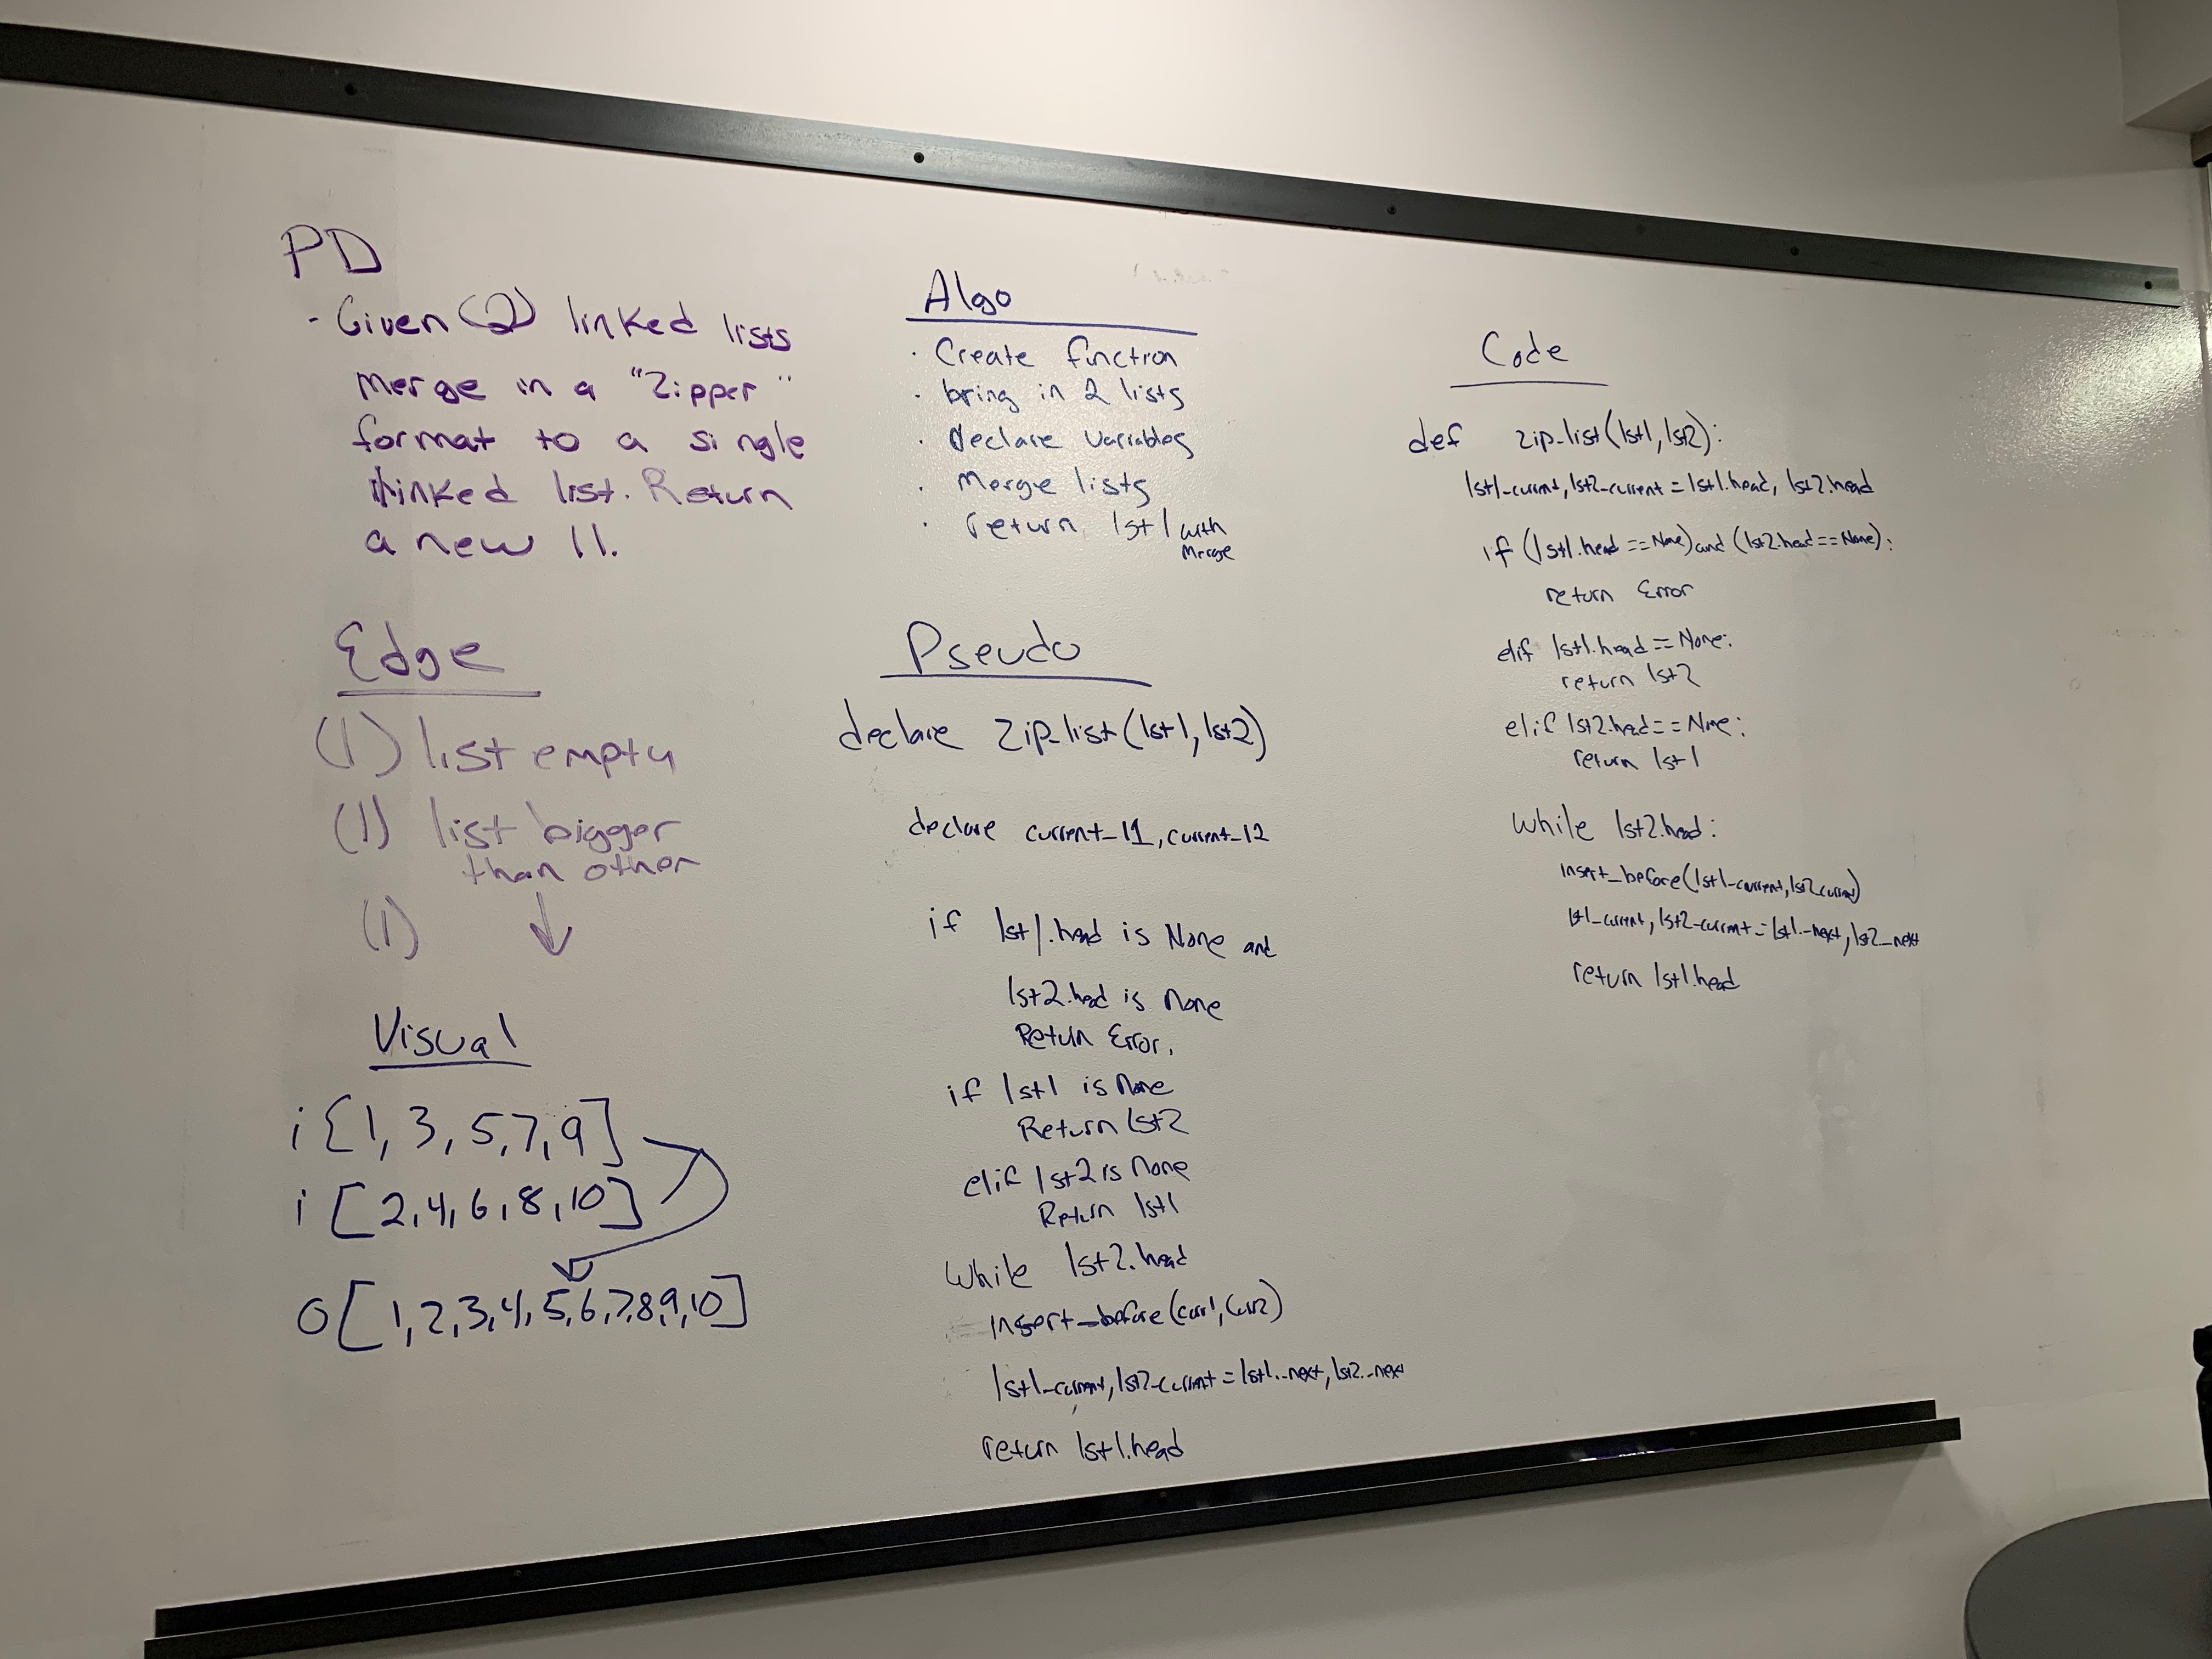 PD
- Given (2) linked lists
merge in a "Zipper"
format to a single
linked list. Return
a new ll.
Edge
(1) list empty
(1) list bigger
than other
(1)
Visual
i [1, 3, 5, 7, 9]
i [2, 4, 6, 8, 10]
O [1, 2, 3, 4, 5, 6, 7, 8, 9, 10]
Algo
· Create function
· bring in 2 lists
· Declare variables
· Merge lists
· return lst1 with
Merge
Pseudo
declare zip_list(lst1, lst2)
declare current_l1, current_l2
if lst1.head is None and
lst2.head is None
Return Error.
if lst1 is None
Return lst2
elif lst2 is None
Return lst1
While lst2.head
insert_before(curr1, curr2)
lst1_current, lst2_current = lst1._next, lst2._next
return lst1.head
Code
def zip_list(lst1, lst2):
lst1_current, lst2_current = lst1.head, lst2.head
if (lst1.head == None) and (lst2.head == None):
return Error
elif lst1.head == None:
return lst2
elif lst2.head == None:
return lst1
While lst2.head:
insert_before(lst1_current, lst2_current)
lst1_current, lst2_current = lst1._next, lst2._next
return lst1.head